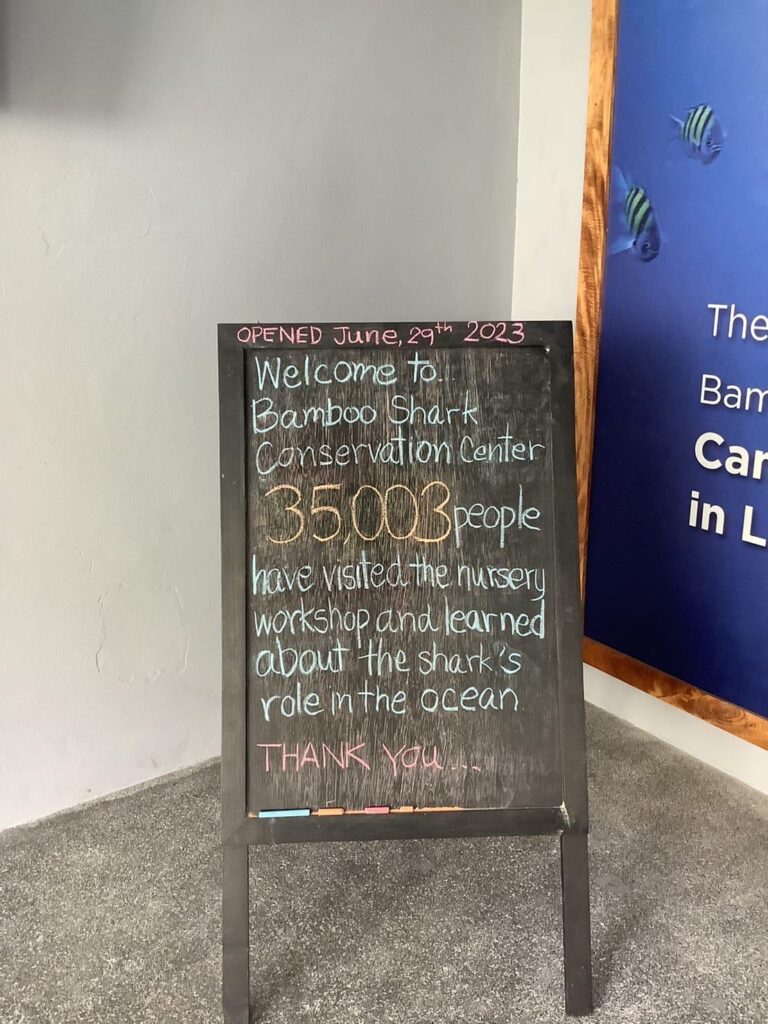 OPENED June, 29th 2023
Welcome to..
Bamboo Shark
Conservation Center
35,003 people
have visited the nursery
workshop and learned
about the shark's
role in the ocean
THANK YOU...
The
Bam
Car
in L